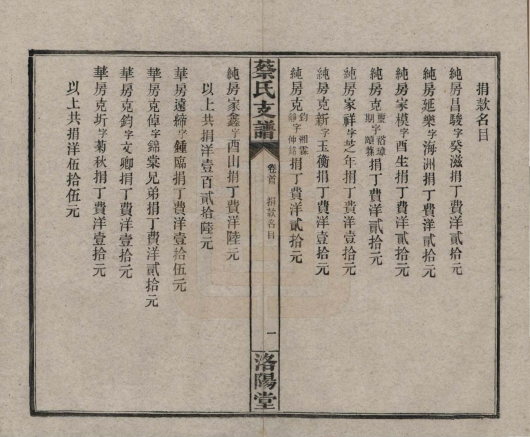 捐款名目
純房昌駿字癸滋捐丁費洋貳拾元
純房延樂字海洲捐丁費洋貳拾元
純房家模字酉生捐丁費洋貳拾元
純房克期字捐丁費洋貳拾元
純房家祥字芝年捐丁費洋壹拾元
純房克新字玉衡捐丁費洋壹拾元
純房克鈞字捐丁費洋貳拾元
蔡氏支譜
卷首
捐款名目
一
洛陽堂
純房家鑫字酉山捐丁費洋陸元
以上共捐洋壹百貳拾陸元
華房遠締字鍾臨捐丁費洋壹拾伍元
華房克倬字錦棠兄弟捐丁費洋貳拾元
華房克鈞字文卿捐丁費洋壹拾元
華房克圻字菊秋捐丁費洋壹拾元
以上共捐洋伍拾伍元